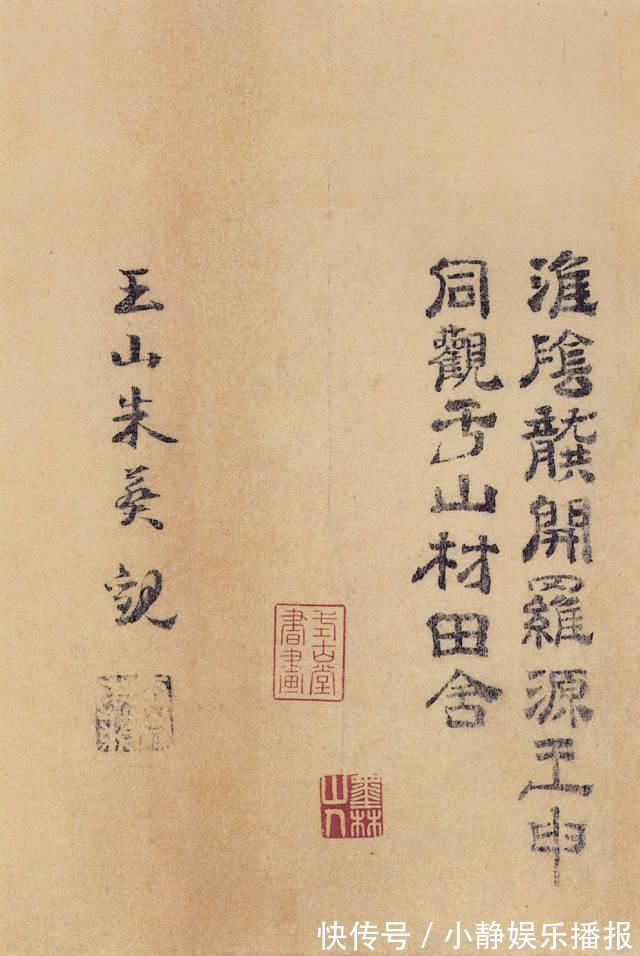 淮陰龔開羅源王申
同觀于山村田舍
式古堂書畫
墨林山人
王山朱葵觀
快传号/小静娱乐播报